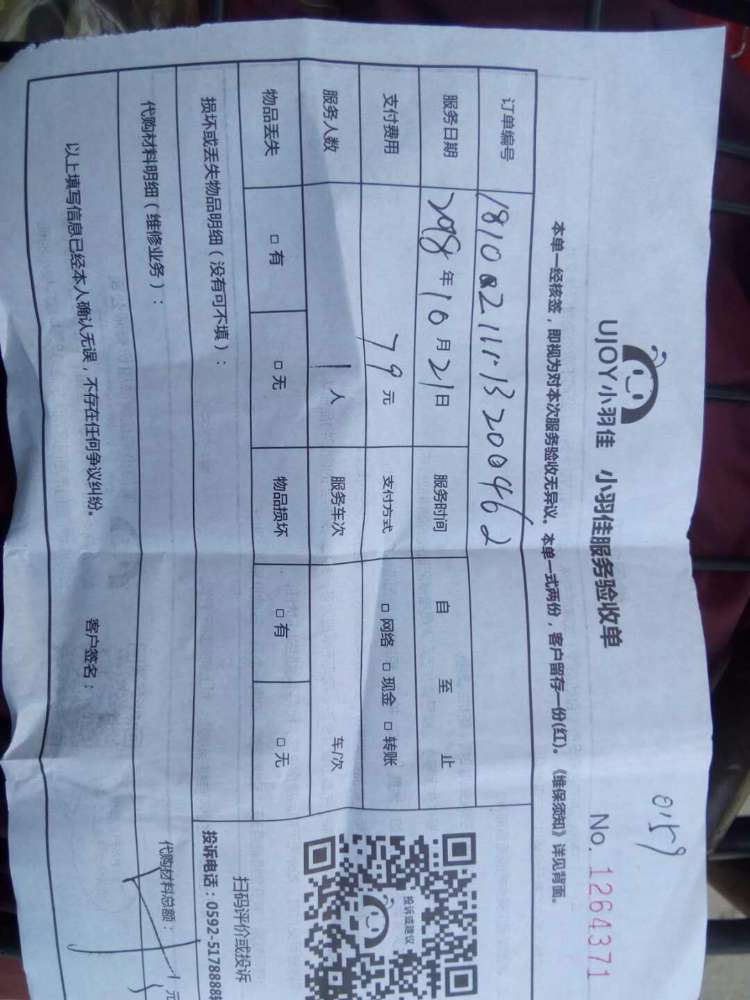 0159
UJOY小羽佳 小羽佳服务验收单
No. 1264371
本单一经核签，即视为对本次服务验收无异议。本单一式两份，客户留存一份(红)。《维保须知》详见背面。
订单编号 1810021111513200462
服务日期 2018年10月21日 服务时间 自 至 止
支付费用 79元 支付方式 □网络 □现金 □转账
服务人数 1人 服务车次 车/次
物品丢失 □有 □无 物品损坏 □有 □无
损坏或丢失物品明细（没有可不填）：
代购材料明细（维修业务）：
代购材料总额： 元
以上填写信息已经本人确认无误，不存在任何争议纠纷。 客户签名：
投诉或建议
扫码评价或投诉
投诉电话：0592-5178888